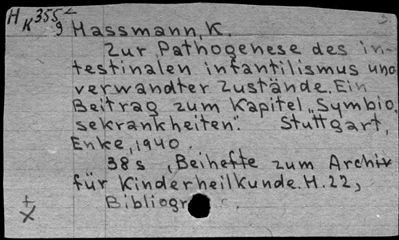 H K 355
9
Hassmann, K.
Zur Pathogenese des in-
testinalen infantilismus und
verwandter Zustände. Ein
Beitrag zum Kapitel „Symbio
sekrankheiten". Stuttgart,
Enke, 1940.
38s , Beihefte zum Archiv
für Kinderheilkunde. H. 22,
Bibliogr